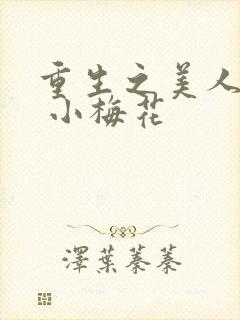 重生之美人
小梅花
澤葉蓁蓁